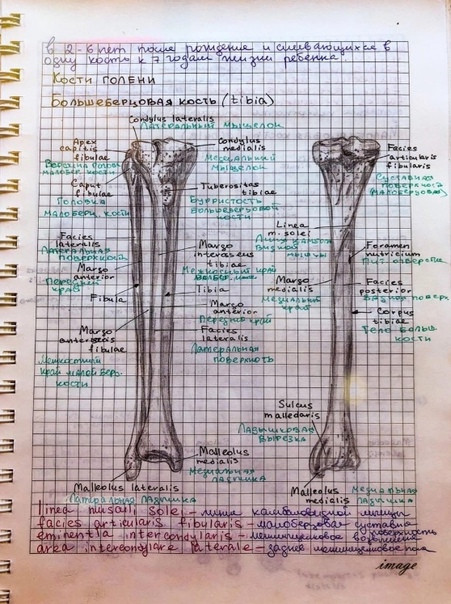 в 2-6 лет после рождение и сливающихся в
одну кость к 7 годам жизни ребенка.
Кости голени
Большеберцовая кость (tibia)
Condylus lateralis
Латеральный мыщелок
Apex
capitis
fibulae
Верхушка голов.
малобер. кости
Caput
fibulae
Головка
малоберц. кости
Facies
lateralis
Латеральная
поверхность
Margo
anterior
Передний
край
Fibula
Margo
fibulae
Межкостный
край малой бер-
кости
Malleolus lateralis
Латеральная лодыжка
Condylus
medialis
Медиальный
мыщелок
Tuberositas
tibiae
Бугристость
большеберцовой
кости
Margo
interosseus
tibiae
Межкостный край
Tibia
Margo
anterior
Передний край
Facies
lateralis
Латеральная
поверхность
Malleolus
medialis
Медиальная
лодыжка
Facies
articularis
fibularis
Суставная
поверхность
(малоберцовая)
Linea
m. solei
Линия камбало
видной
мышцы
Foramen
nutricium
Пит. отверстие
Margo
medialis
Медиальный
край
Facies
posterior
Задняя поверх.
Corpus
tibiae
Тело больш.
кости
Sulcus
malledaris
Лодыжковая
вырезка
Malleolus
medialis
Медиальная
лодыжка
linea musculi solei - линия камбаловидной мышцы
facies articularis fibularis - малоберцовая суставная поверхность
eminentia intercondylaris - межмыщелковое возвышение
area intercondylare laterale - заднее межмыщелковое поле
image